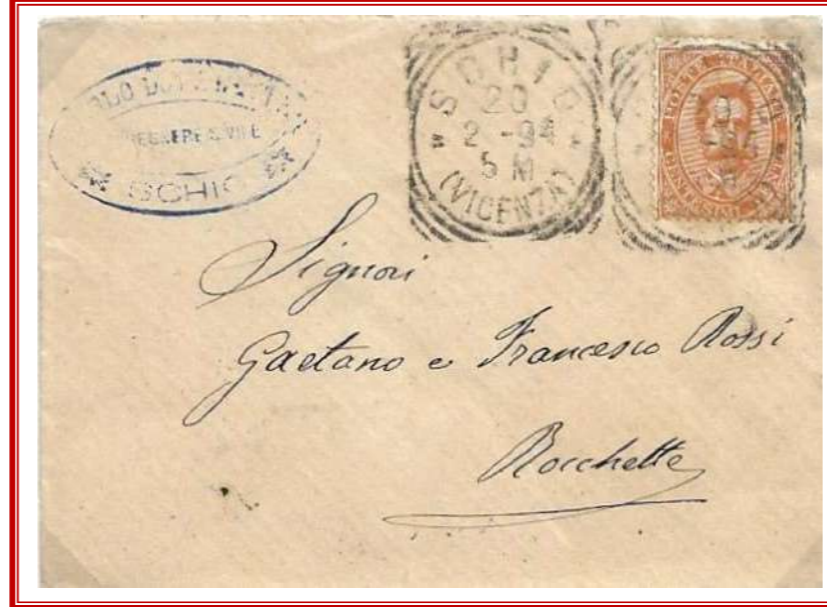 SCHIO
SCHIO
20
2 -94
5 M
(VICENZA)
POSTE ITALIANE
Signori
Gaetano e Francesco Rossi
Rocchette